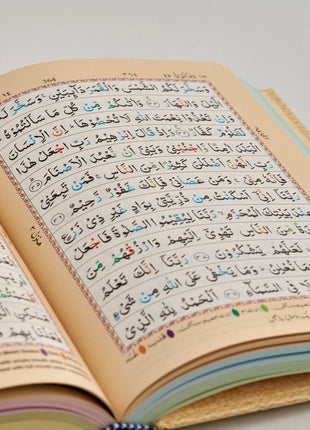 364 ٣٦٤
وَسَخَّرَ لَكُمُ الشَّمْسَ وَالْقَمَرَ دَآئِبَيْنِ ۚ وَسَخَّرَ لَكُمُ
الَّيْلَ وَالنَّهَارَ ﴿٣٣﴾ وَاٰتٰىكُمْ مِّنْ كُلِّ مَا سَاَلْتُمُوْهُ ؕ وَاِنْ
تَعُدُّوْا نِعْمَتَ اللّٰهِ لَا تُحْصُوْهَا ؕ اِنَّ الْاِنْسَانَ
لَظَلُوْمٌ كَفَّارٌ ﴿٣٤﴾ وَاِذْ قَالَ اِبْرٰهِيْمُ رَبِّ اجْعَلْ هٰذَا
الْبَلَدَ اٰمِنًا وَّاجْنُبْنِيْ وَبَنِيَّ اَنْ نَّعْبُدَ الْاَصْنَامَ ﴿٣٥﴾
رَبِّ اِنَّهُنَّ اَضْلَلْنَ كَثِيْرًا مِّنَ النَّاسِ ۚ فَمَنْ تَبِعَنِيْ
فَاِنَّهٗ مِنِّيْ ۚ وَمَنْ عَصَانِيْ فَاِنَّكَ غَفُوْرٌ رَّحِيْمٌ ﴿٣٦﴾
رَبَّنَآ اِنِّيْٓ اَسْكَنْتُ مِنْ ذُرِّيَّتِيْ بِوَادٍ غَيْرِ ذِيْ زَرْعٍ
عِنْدَ بَيْتِكَ الْمُحَرَّمِ ۙ رَبَّنَا لِيُقِيْمُوا الصَّلٰوةَ فَاجْعَلْ
اَفْئِدَةً مِّنَ النَّاسِ تَهْوِيْٓ اِلَيْهِمْ وَارْزُقْهُمْ مِّنَ
لَعَلَّهُمْ يَشْكُرُوْنَ ﴿٣٧﴾ رَبَّنَآ اِنَّكَ تَعْلَمُ
نُخْفِيْ وَمَا نُعْلِنُ ؕ وَمَا يَخْفٰى عَلَى اللّٰهِ مِنْ شَيْءٍ
وَلَا فِي السَّمَآءِ ﴿٣٨﴾ اَلْحَمْدُ لِلّٰهِ الَّذِيْ